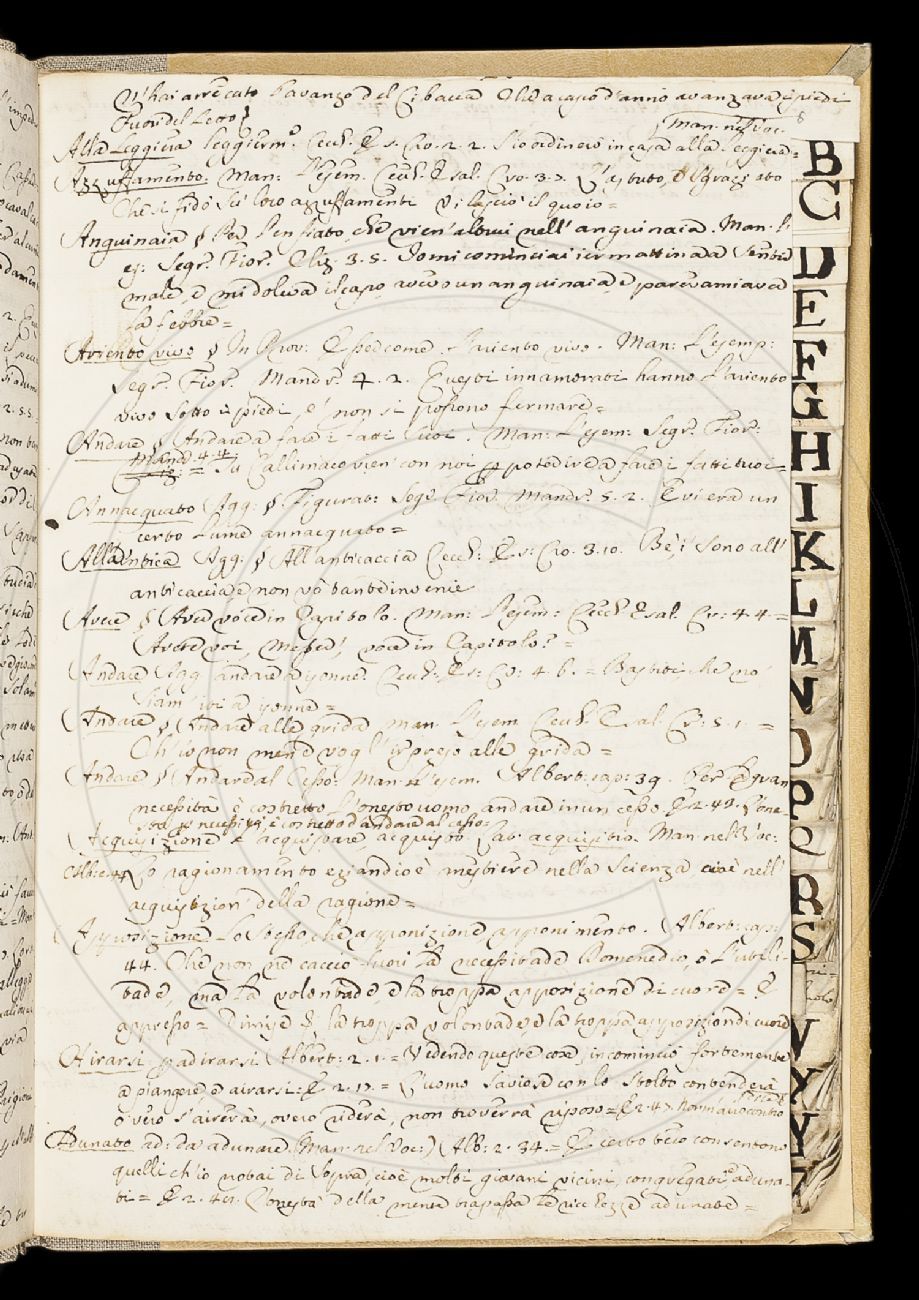 V'hai arrecato l'avanzo del Cibacca che a capo d'anno avanzava a piedi
fuor del Letto
Man. nel Voc.
Alla Leggiera leggierm.e Cecch. E s. Cro. 2. 2. Si ordinero in casa alla leggiera=
Azzuffamento. Man: l'esem. Cecch. Esal. Cro. 3. 7. L'astuto, e sgraziato
Che si fidò su' loro azzuffamenti vi lasciò il quoio=
Anguinaia § Per l'enfiato, che vien' altrui nell'anguinaia. Man. l'
es: Segr. Fior. Cliz. 3. 5. Io mi cominciai ier mattina a sentir
male, e mi doleva il capo, avevo un anguinaia, e parevami aver
la febbre=
Ariento vivo § In Prov: E sped come l'ariento vivo. Man: l'esemp:
Segr. Fior. Mandr. 4. 2. Questi innamorati hanno l'ariento
vivo sotto i piedi, e' non si possono fermare=
Andare § Andare a fare i fatti suoi. Man: l'esem: Segr. Fior:
Mand. 4. 4.
= Tu Callimaco vien' con noi poterdire a fare i fatti tuoi=
Annacquato Agg: § Figurat: Segr. Fior. Mandr. 5. 2. E vi era un
certo lume annacquato=
All'Antica Agg: § All'anticaccia Cecch: Es: Cro. 3. 10. Be', i' sono all'
anticaccia e non vò tante invenie
Avere § Aver voce in Capitolo. Man: l'esem: Cecch. Esal. Cr: 4. 4=
Avete voi, Messer, voce in Capitolo?=
Andare Agg andare a gonne. Cecch: Es: Cr: 4. 6.= Bastiti che no'
siam' iti a gonne=
Andare § Andare alle grida man. l'esem Cecch. Esal. Cr: 5. 1.=
Ch' io non me n'ero vogl' ir preso alle grida=
Andare § Andar al Cesso: Man: l'esem. Albert: cap: 39. Per gran
necessità è costretto l'onesto uomo, andare in un cesso. E 2. 49. L'one-
sto p necessità è costretto d'andare al cesso.
Acquisizione L'acquistare, acquisto. Lat: acquisitio. Man nel Voc:
Alb: c. 47 Lo ragionamento eziandio è mestiere nella scienza cioè nell'
acquistazion' della ragione=
Apposizione Lo stesso, che apponizione apponimento. Albert: cap:
44. Che non ne cacciò fuori la necessitade Domenedio, o l'utili-
tade, ma la volontade e la troppa apposizione di cuore= E
appresso= Divise la troppa volontade e la troppa apposizion di cuore
Airarsi adirarsi Albert: 2. 1.= Vedendo queste cose, incominciò fortemente
a piangere, e airarsi: E 2. 17.= L'uomo savio se con lo stolto contenderà
o vero s'airerà, overo riderà, non troverrà riposo= E 2. 47. Non m'airo contro
Adunato ad: da adunare. Man: nel Voc:) Alb: 2. 34.= E certo teco consentono
quelli ch'io notai di sopra, cioè molti giovani vicini, congregati, e aduna-
ti= E 2. 41. L'onestà della mente trapassa le ricchezze adunate=
B
C
D
E
F
G
H
I
K
L
M
N
O
P
Q
R
S
V
X
Y
Z